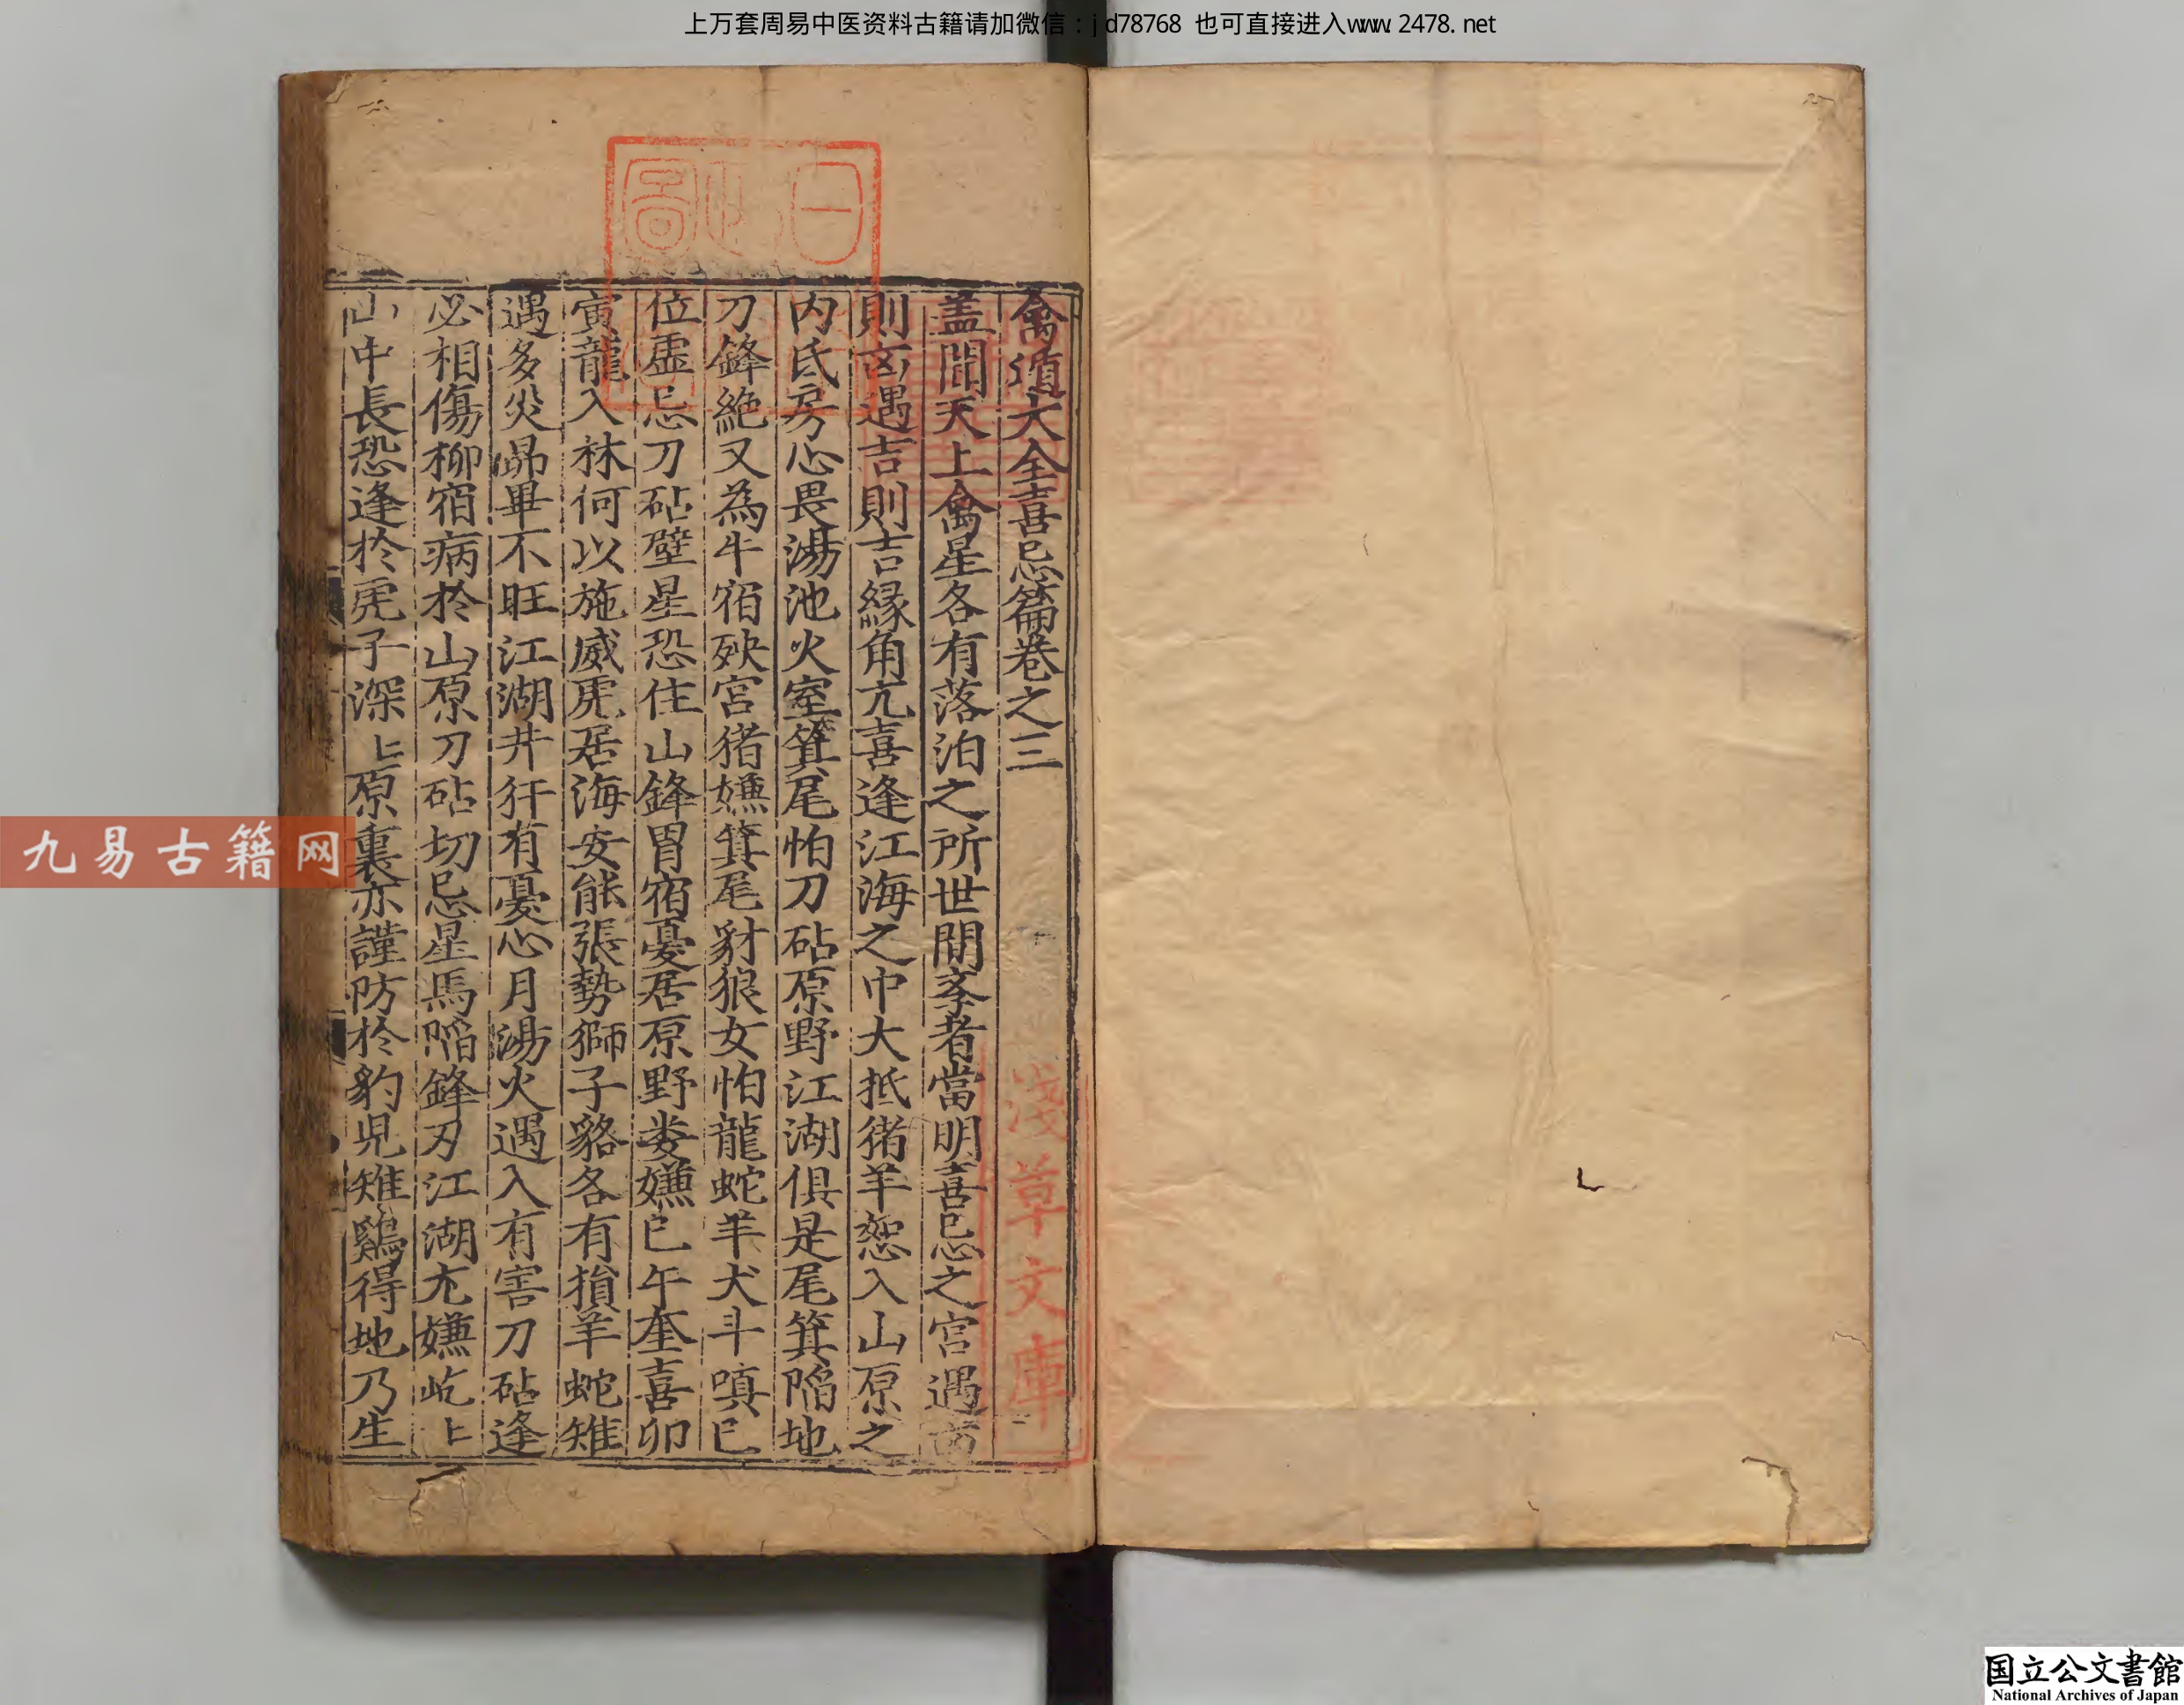 上万套周易中医资料古籍请加微信：jd78768 也可直接进入www.2478.net
禽遁大全喜忌篇卷之三
盖聞天上禽星各有落泊之所世間夲者當明喜忌之宫遇凶
則凶遇吉則吉縁角亢喜逢江海之中大抵猪羊怨入山原之
内氐房心畏湯池火室箕尾怕刀砧原野江湖俱是尾箕陷地
刀鋒絶又為牛宿殃宫猪嫌箕尾豺狼女怕龍蛇羊犬斗嗔巳
位虚忌刀砧壁星恐住山鋒胃宿憂居原野娄嫌巳午奎喜卯
寅龍入林何以施威虎居海安能張勢獅子貉各有損羊蛇雉
遇多災昴畢不旺江湖井犴有憂心月湯火遇入有害刀砧逢
必相傷柳宿病於山原刀砧切忌星馬陷鋒刃江湖尤嫌屹上
山中長恐逢於虎子深上原裏亦謹防於豹児雉鷄得地乃生
淺草文庫
九易古籍网
国立公文書館
National Archives of Japan